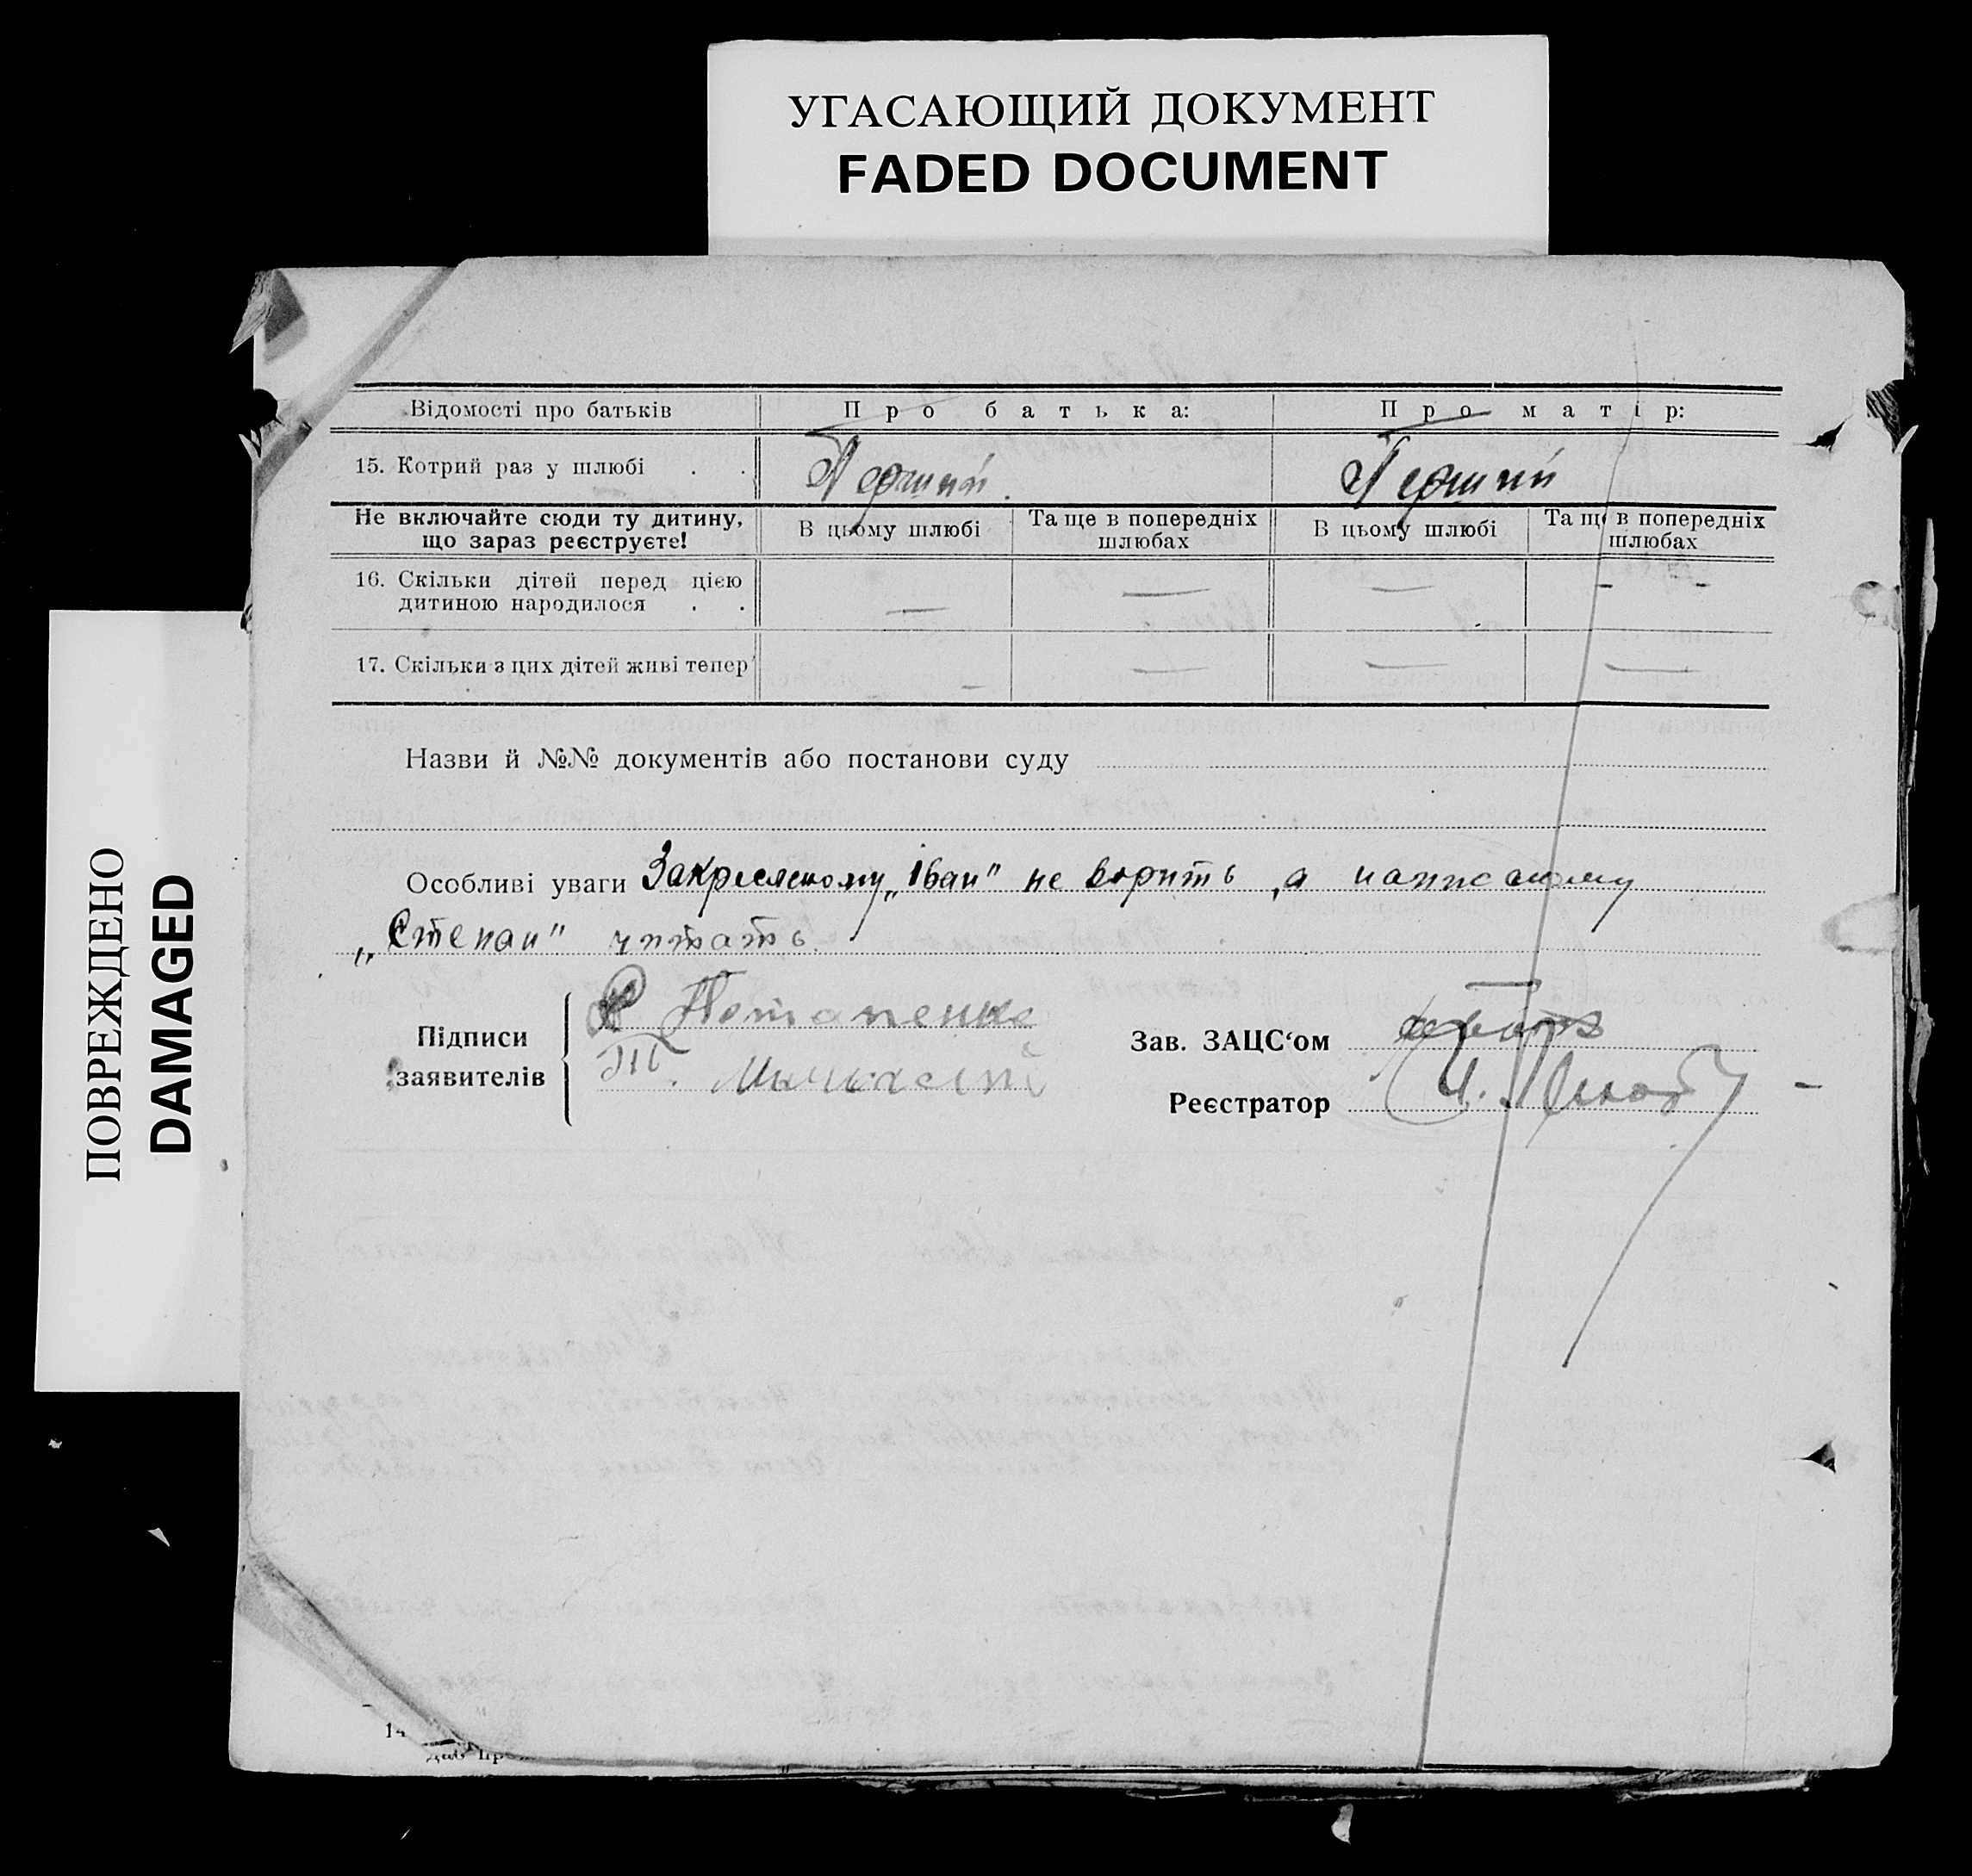 УГАСАЮЩИЙ ДОКУМЕНТ
FADED DOCUMENT
ПОВРЕЖДЕНО
DAMAGED
Відомості про батьків Про батька: Про матір:
15. Котрий раз у шлюбі . . Перший. Перший
Не включайте сюди ту дитину, що зараз реєструєте! В цьому шлюбі Та ще в попередніх шлюбах В цьому шлюбі Та ще в попередніх шлюбах
16. Скільки дітей перед цією дитиною народилося . . — — — - -
17. Скільки з цих дітей живі тепер — — — —
Назви й №№ документів або постанови суду
Особливі уваги Закресленому „Іван" не вірить, а написаному
„Степан" читать
Підписи заявителів
Потапенко
Зав. ЗАЦС‘ом
Реєстратор
14